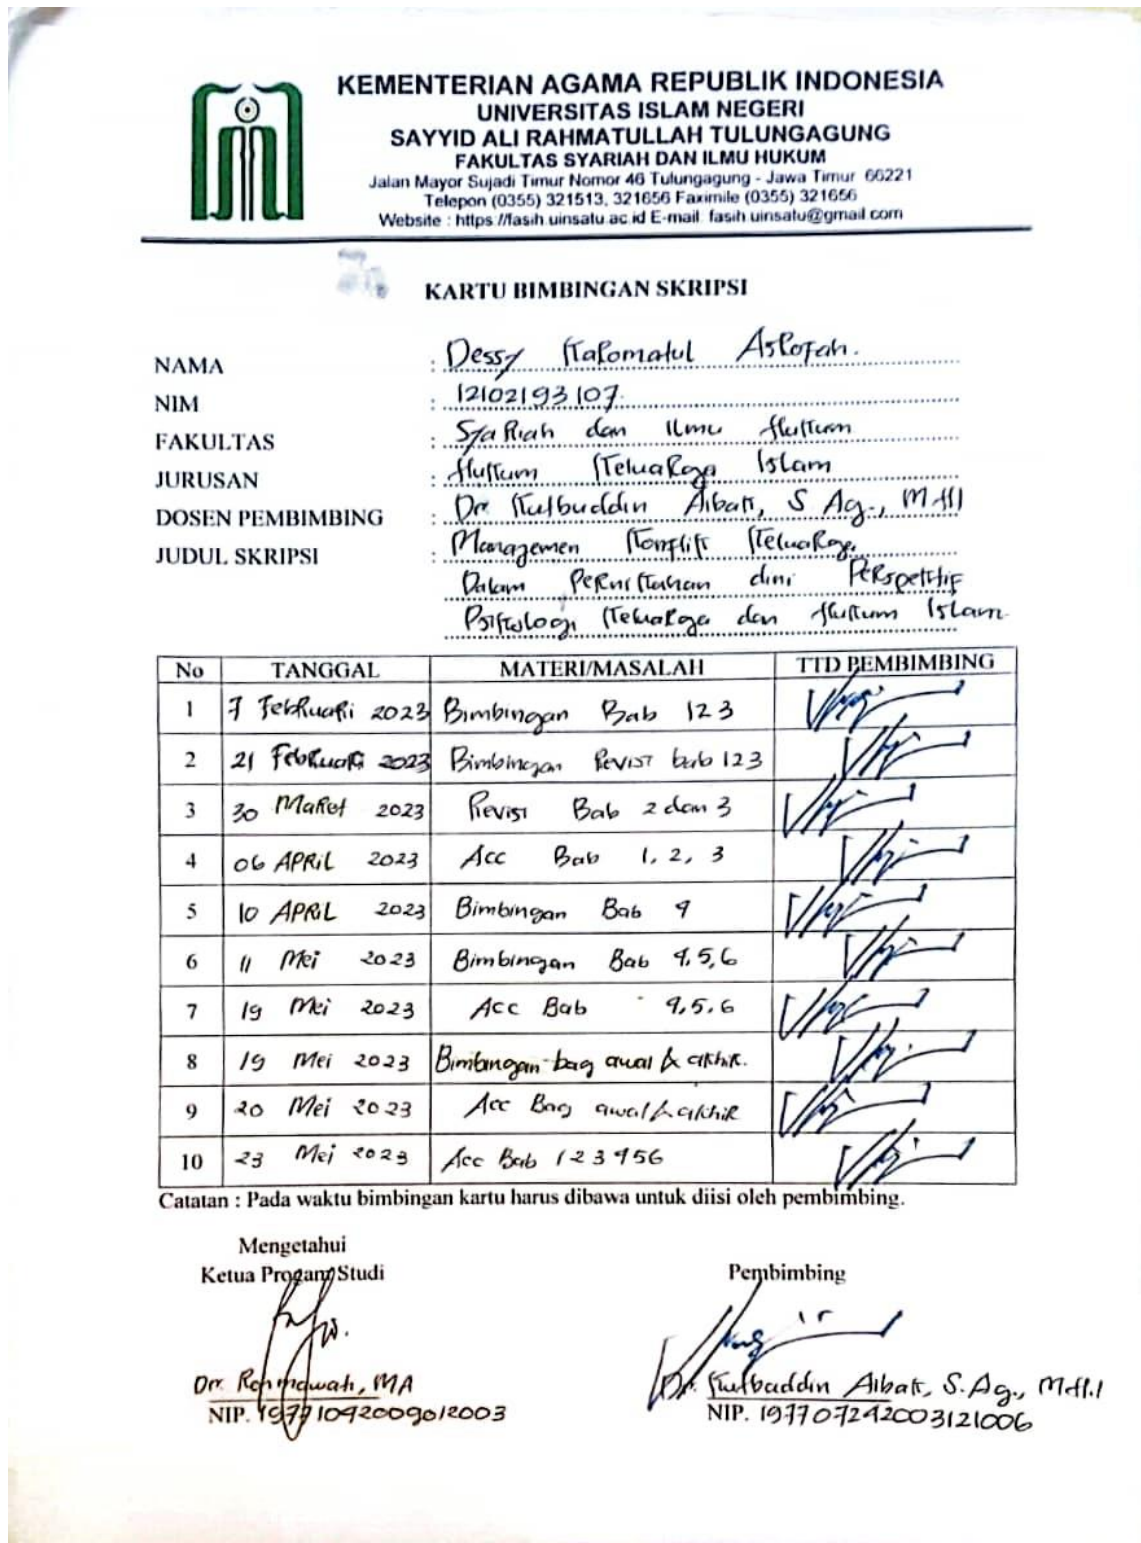 KEMENTERIAN AGAMA REPUBLIK INDONESIA
UNIVERSITAS ISLAM NEGERI
SAYYID ALI RAHMATULLAH TULUNGAGUNG
FAKULTAS SYARIAH DAN ILMU HUKUM
Jalan Mayor Sujadi Timur Nomor 46 Tulungagung - Jawa Timur 66221
Telepon (0355) 321513, 321656 Faximile (0355) 321656
Website : https //fasih.uinsatu.ac.id E-mail: fasih.uinsatu@gmail.com
KARTU BIMBINGAN SKRIPSI
NAMA : Dessy
NIM : 12102193107
FAKULTAS : Syariah dan Ilmu Hukum
JURUSAN : Hukum Keluarga Islam
DOSEN PEMBIMBING : Dr Kutbuddin Aibak, S Ag., MHI
JUDUL SKRIPSI : Managemen Konflik Keluarga
Dalam Pernikahan dini Perspektif
Psikologi Keluarga dan Hukum Islam
No TANGGAL MATERI/MASALAH TTD PEMBIMBING
1 7 Februari 2023 Bimbingan Bab 123
2 21 Februari 2023 Bimbingan Revisi bab 123
3 30 Maret 2023 Revisi Bab 2 dan 3
4 06 APRIL 2023 Acc Bab 1, 2, 3
5 10 APRIL 2023 Bimbingan Bab 4
6 11 Mei 2023 Bimbingan Bab 4,5,6
7 19 Mei 2023 Acc Bab 4,5,6
8 19 Mei 2023 Bimbingan bag awal & akhir.
9 20 Mei 2023 Acc Bag awal & akhir
10 23 Mei 2023 Acc Bab 123456
Catatan : Pada waktu bimbingan kartu harus dibawa untuk diisi oleh pembimbing.
Mengetahui
Ketua Progam Studi
Pembimbing
Dr. Rohmawati, MA
NIP. 19771092009012003
Dr. Kutbuddin Aibak, S.Ag., M.H.I
NIP. 197707242003121006